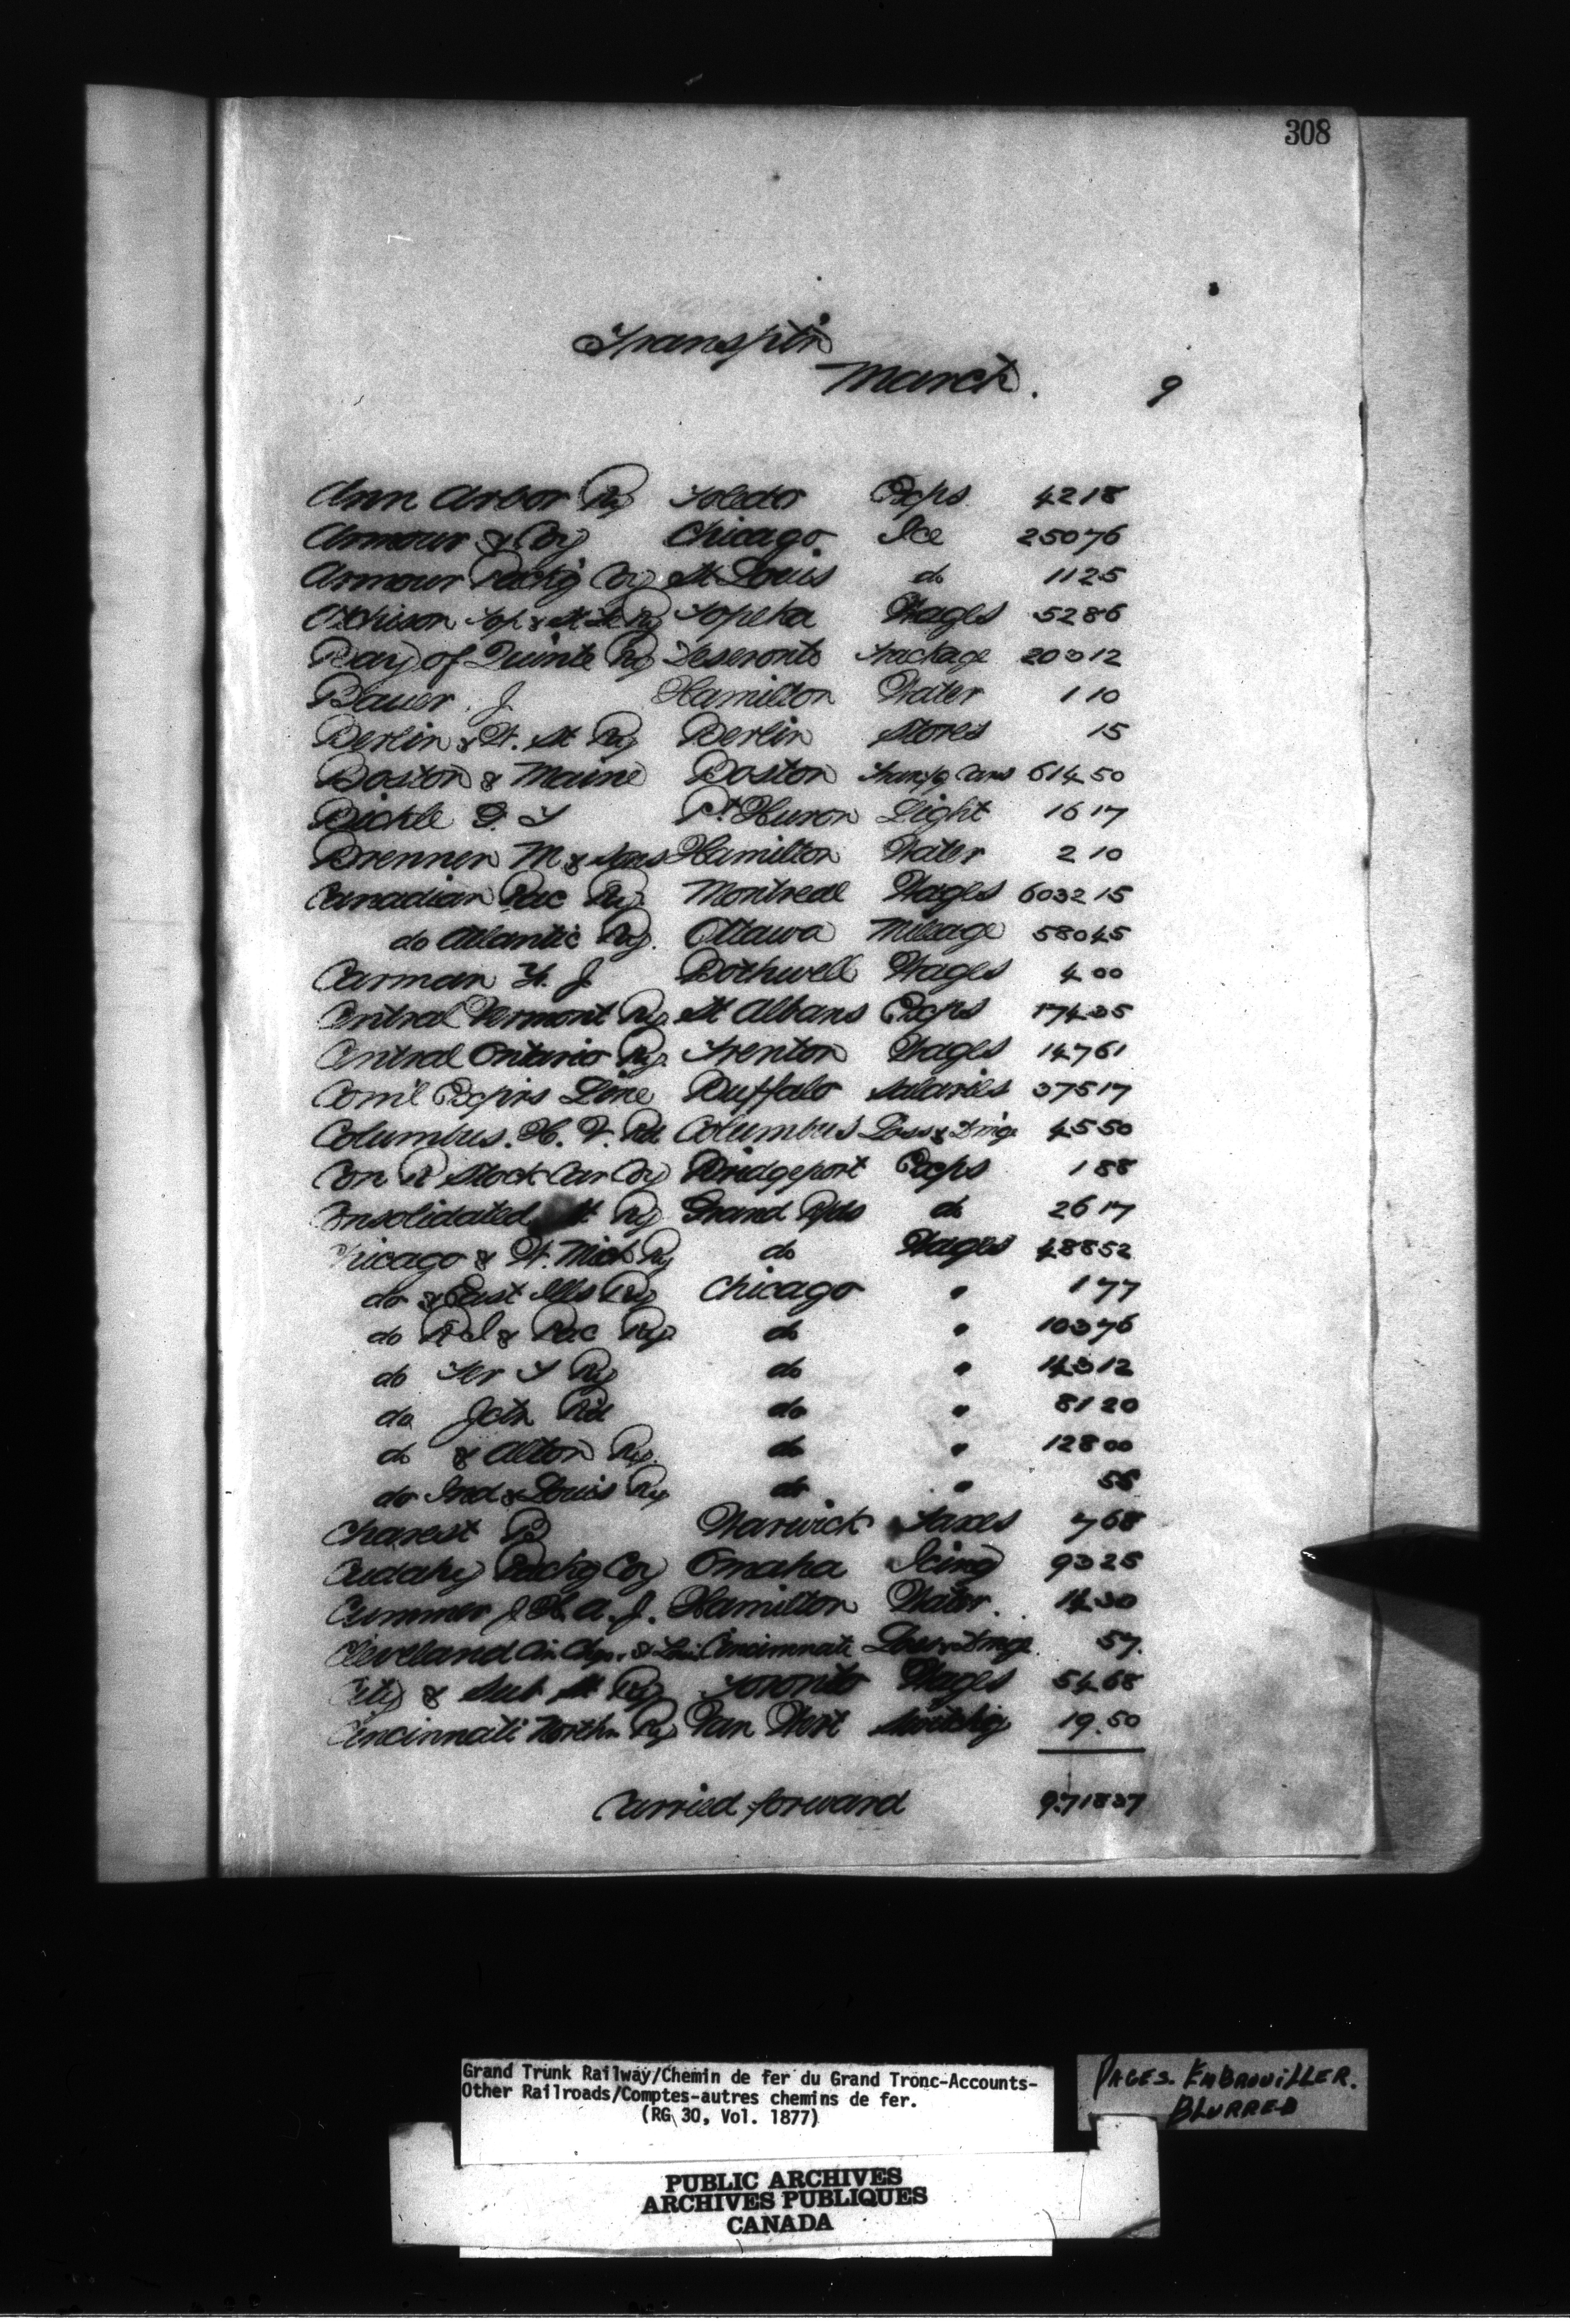 308
Transptn
March. 9
Ann Arbor Ry Toledo Exps. 42 18
Armour & Coy Chicago Ice 250 76
Armour Packg Coy St Louis do 11 25
Atchison Top & St Fe Ry Topeka Wages 52 86
Bay of Quinte Ry Deseronto Trackage 203 12
Bauer. J. Hamilton Water 1 10
Berlin & W. St Ry Berlin Stores 15
Boston & Maine Boston Cars 614 50
Bickle G. T Pt Huron Light 16 17
Brenner M & Sons Hamilton Water 2 10
Canadian Pac Ry. Montreal Wages 6032 15
do Atlantic Ry. Ottawa Mileage 580 45
Carman J. Bothwell Wages 4 00
Central Vermont Ry. St Albans Exps 174 35
Central Ontario Ry. Trenton Wages 147 61
Coml Exprs Line Buffalo Salaries 375 17
Columbus. H. V. Rd Columbus Loss & Dmge 45 50
Con R Stock Car Coy Bridgeport Exps 1 88
Consolidated St Ry Grand Rpds do 26 17
Chicago & W. Mich Ry do Wages 488 52
do & East Ills Ry Chicago " 1 77
do R I & Pac Ry do " 103 76
do Ter T Ry do " 143 12
do Jctn Rd do " 81 20
do & Alton Ry. do " 128 00
do Ind & Louis Ry do "
Charest B Warwick Taxes 7 68
Cudahy Packg Coy Omaha Icing 93 25
Cummer J. Hamilton Water. 14 30
Cleveland Cin. Chgo. & Cincinnati Loss & Dmge 57.
City & Sub St Ry Toronto Wages 54 68
Cincinnati Northn Ry Van Wert Switchg 19.50
Carried forward 9718 37
Grand Trunk Railway/Chemin de fer du Grand Tronc-Accounts-
Other Railroads/Comptes-autres chemins de fer.
(RG 30, Vol. 1877)
PAGES. EMBROUILLER.
BLURRED
PUBLIC ARCHIVES
ARCHIVES PUBLIQUES
CANADA